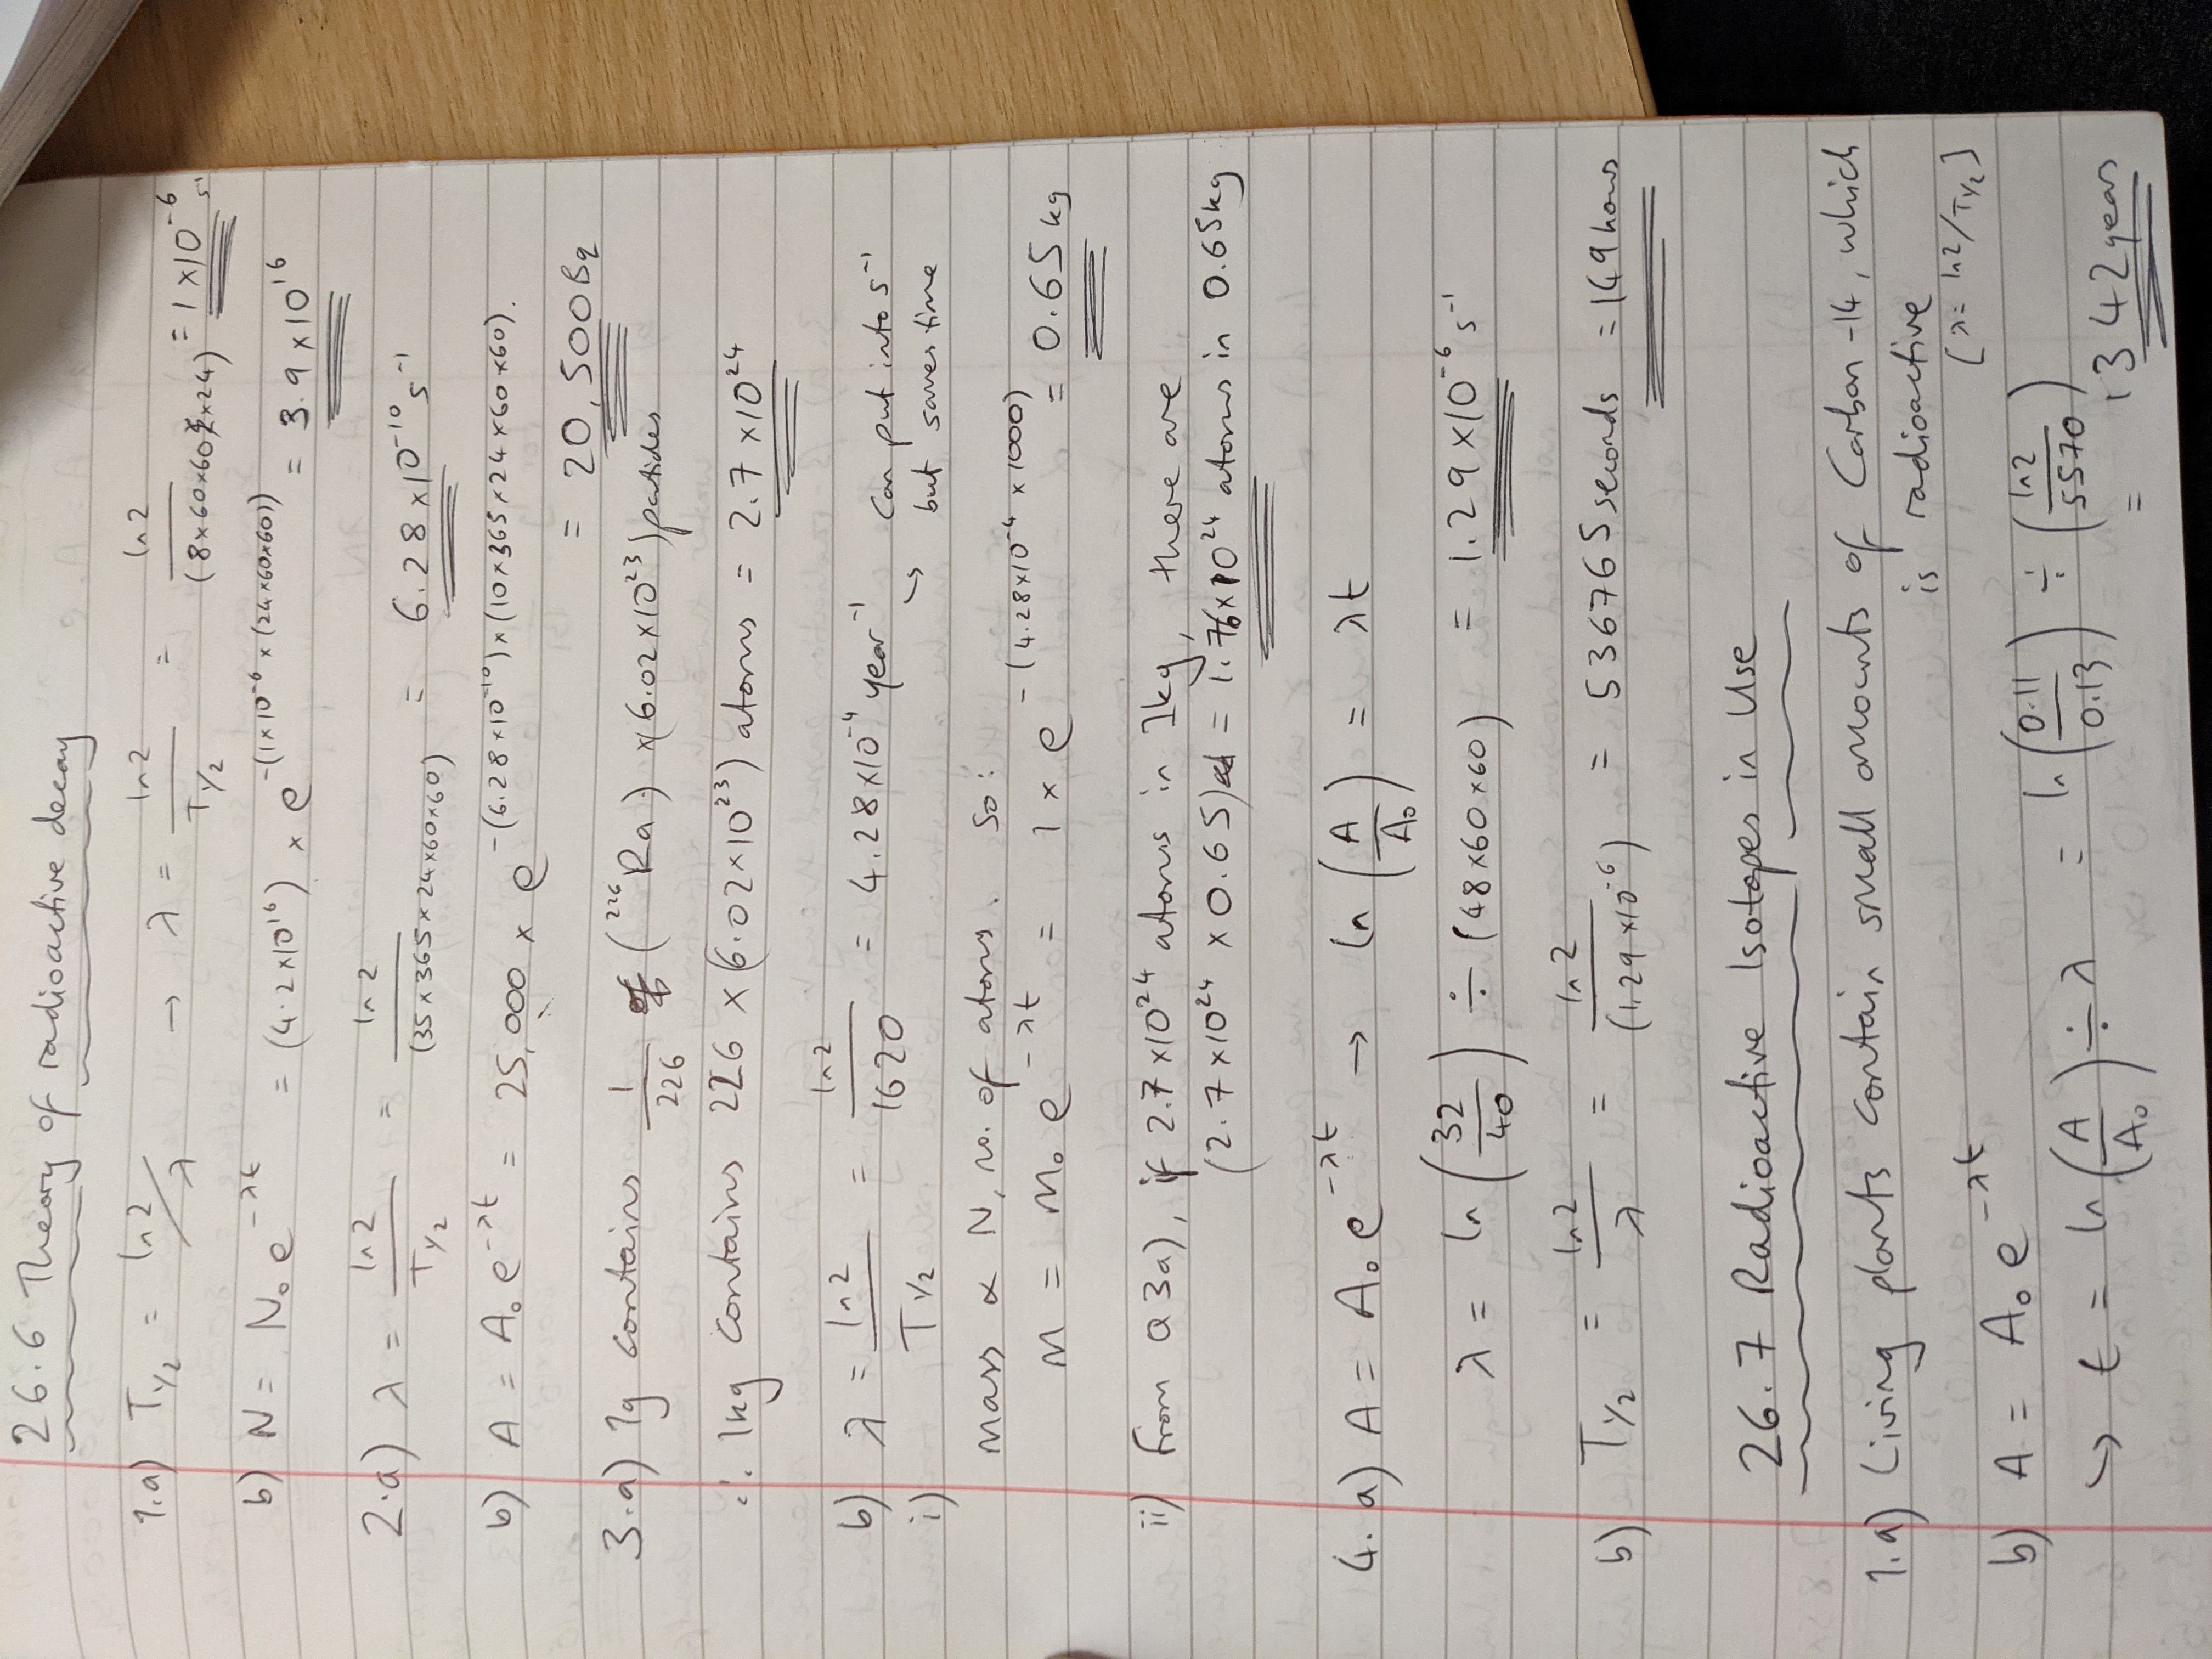 26.6 Theory of radioactive decay
1.a) T½ = ln2/λ → λ = ln2/T½ = ln2/(8×60×60×24) = 1×10⁻⁶ s⁻¹
b) N = N₀e^-λt = (4.2×10¹⁶) × e^-(1×10⁻⁶ × (24×60×60)) = 3.9×10¹⁶
2.a) λ = ln2/T½ = ln2/(35×365×24×60×60) = 6.28×10⁻¹⁰ s⁻¹
b) A = A₀e^-λt = 25,000 × e^-(6.28×10⁻¹⁰)×(10×365×24×60×60).
= 20,500Bq
3.a) 1g contains 1/226 (²²⁶Ra) ×(6.02×10²³) particles
∴ 1kg contains 226 × (6.02×10²³) atoms = 2.7×10²⁴
b) λ = ln2/T½ = ln2/1620 = 4.28×10⁻⁴ year⁻¹ ↪ can put into s⁻¹
i) but saves time
mass ∝ N, no. of atoms. So:
m = m₀e^-λt = 1 × e^-(4.28×10⁻⁴ × 1000) = 0.65kg
ii) from Q3a), if 2.7×10²⁴ atoms in 1kg, there are
(2.7×10²⁴ × 0.65) = 1.76×10²⁴ atoms in 0.65kg
4. a) A = A₀e^-λt → ln(A/A₀) = λt
λ = ln(32/40) ÷ (48×60×60) = 1.29×10⁻⁶ s⁻¹
b) T½ = ln2/λ = ln2/(1.29×10⁻⁶) = 536765 seconds = 149hours
26.7 Radioactive Isotopes in Use
1.a) Living plants contain small amounts of Carbon-14, which
is radioactive
b) A = A₀e^-λt [λ = ln2/T½]
↪ t = ln(A/A₀) ÷ λ = ln(0.11/0.13) ÷ (ln2/5570)
= 1342years